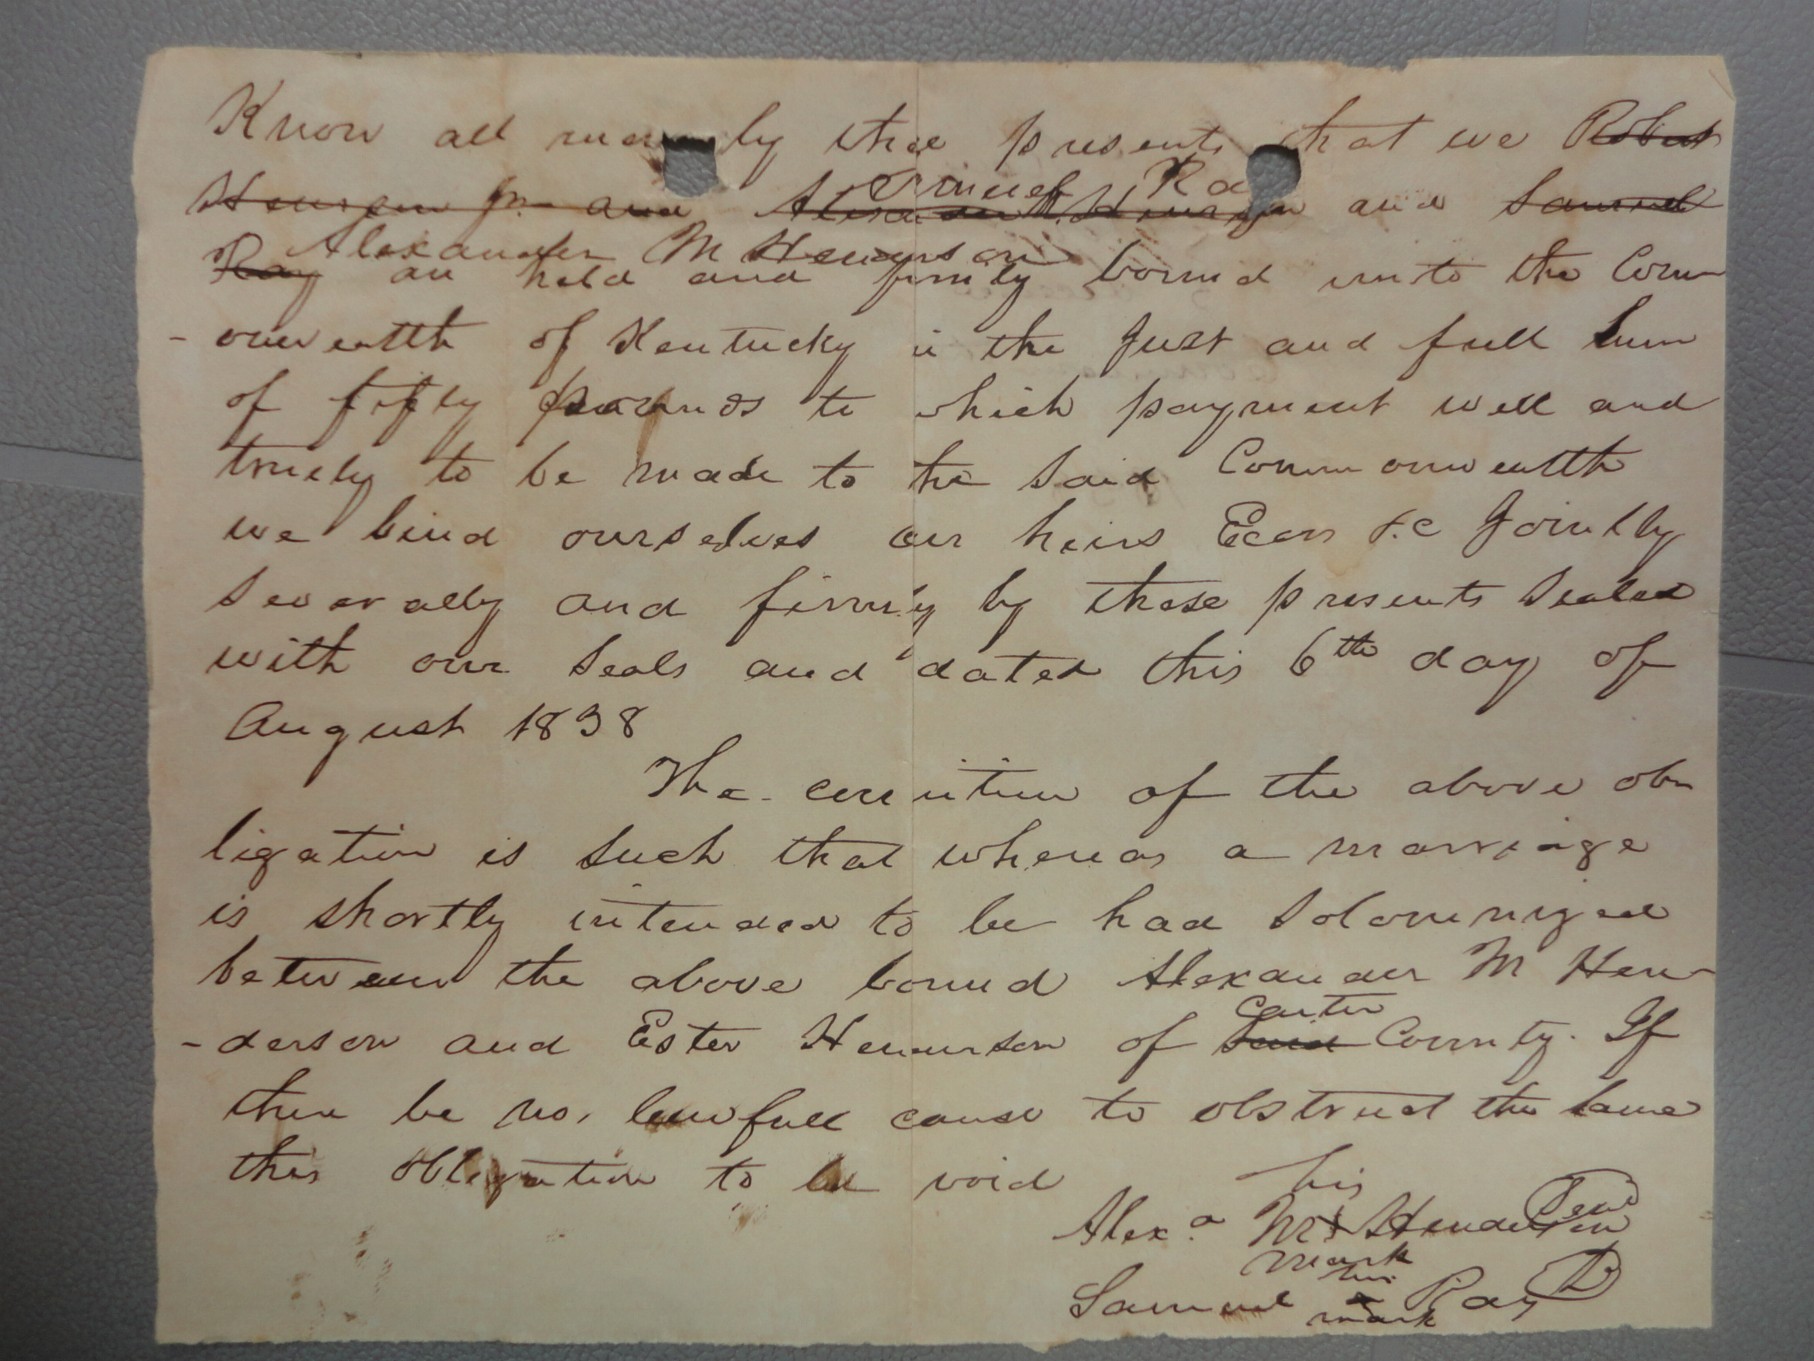 Know all men by these presents that we Robert
Henderson Jr. and Alexander M. Henderson and Samuel
Samuel Ray
Ray are held and firmly bound unto the Com
Alexander M Henderson
-onwealth of Kentucky in the Just and full Sum
of fifty pounds to which payment well and
truely to be made to the Said Commonwealth
we bind ourselves our heirs Ecers &c Jointly
Severally and firmly by these presents Sealed
with our Seals and dated this 6th day of
August 1838
The condition of the above ob-
ligation is Such that whereas a marriage
is shortly intended to be had Solomnized
between the above bound Alexander M Hen-
-derson and Ester Henderson of Said County. If
Carter
there be no, lawfull cause to obstruct the Same
this obligation to be void
his
Alexa. M x Henderson Seal
mark
his
Samuel x Ray
mark